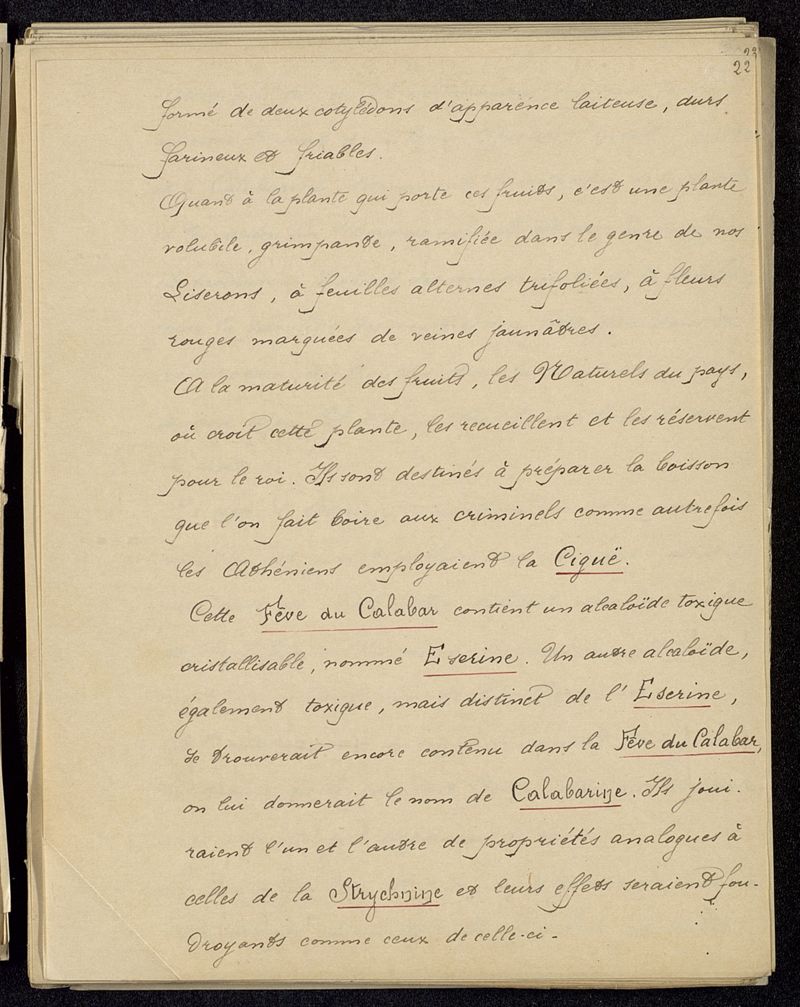 23
22
formé de deux cotylédons d'apparence laiteuse, durs
farineux et friables.
Quant à la plante qui porte ces fruits, c'est une plante
volubile, grimpante, ramifiée dans le genre de nos
Liserons, à feuilles alternes trifoliées, à fleurs
rouges marquées de veines jaunâtres.
A la maturité des fruits, les Naturels du pays,
où croit cette plante, les recueillent et les réservent
pour le roi. Ils sont destinés à préparer la boisson
que l'on fait boire aux criminels comme autrefois
les Athéniens employaient la Ciguë.
Cette Fève du Calabar contient un alcaloïde toxique
cristallisable, nommé Eserine. Un autre alcaloïde,
également toxique, mais distinct de l'Eserine,
se trouverait encore contenu dans la Fève du Calabar,
on lui donnerait le nom de Calabarine. Ils joui-
raient l'un et l'autre de propriétés analogues à
celles de la Strychnine et leurs effets seraient fou-
droyants comme ceux de celle-ci-